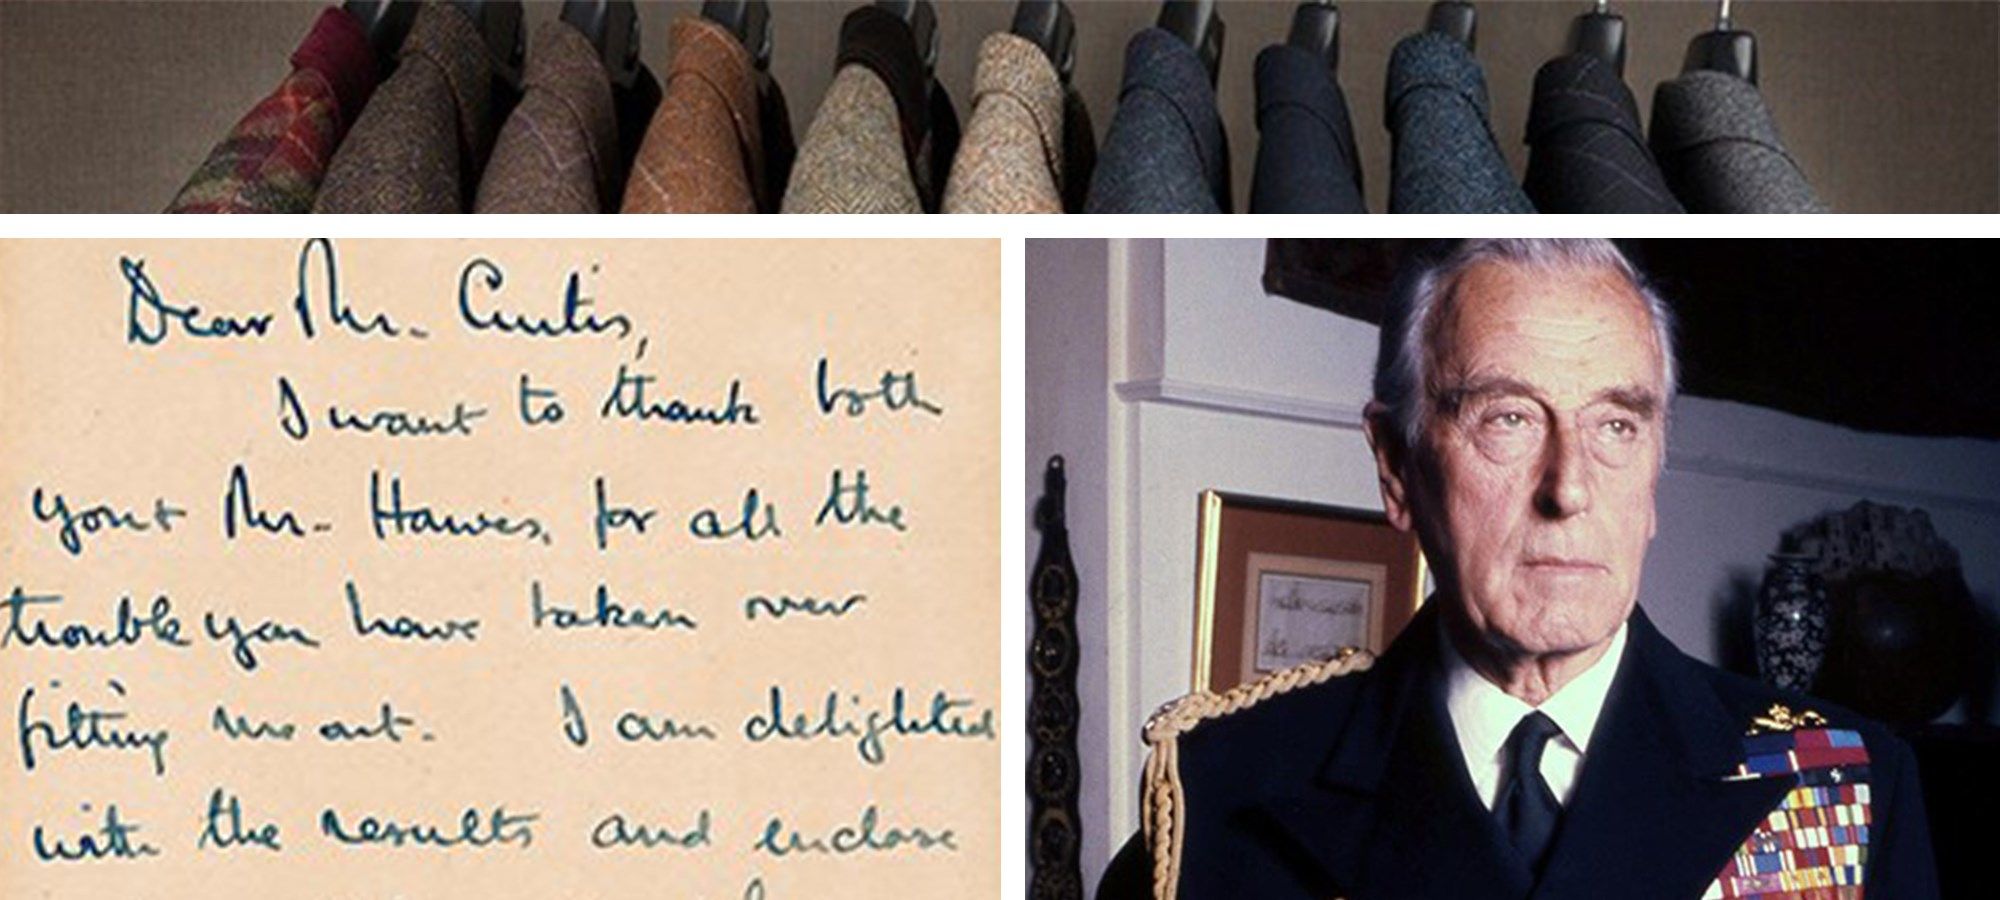 Dear Mr. Curtis,
I want to thank both
you + Mr. Hawes, for all the
trouble you have taken over
fitting me out. I am delighted
with the results and enclose